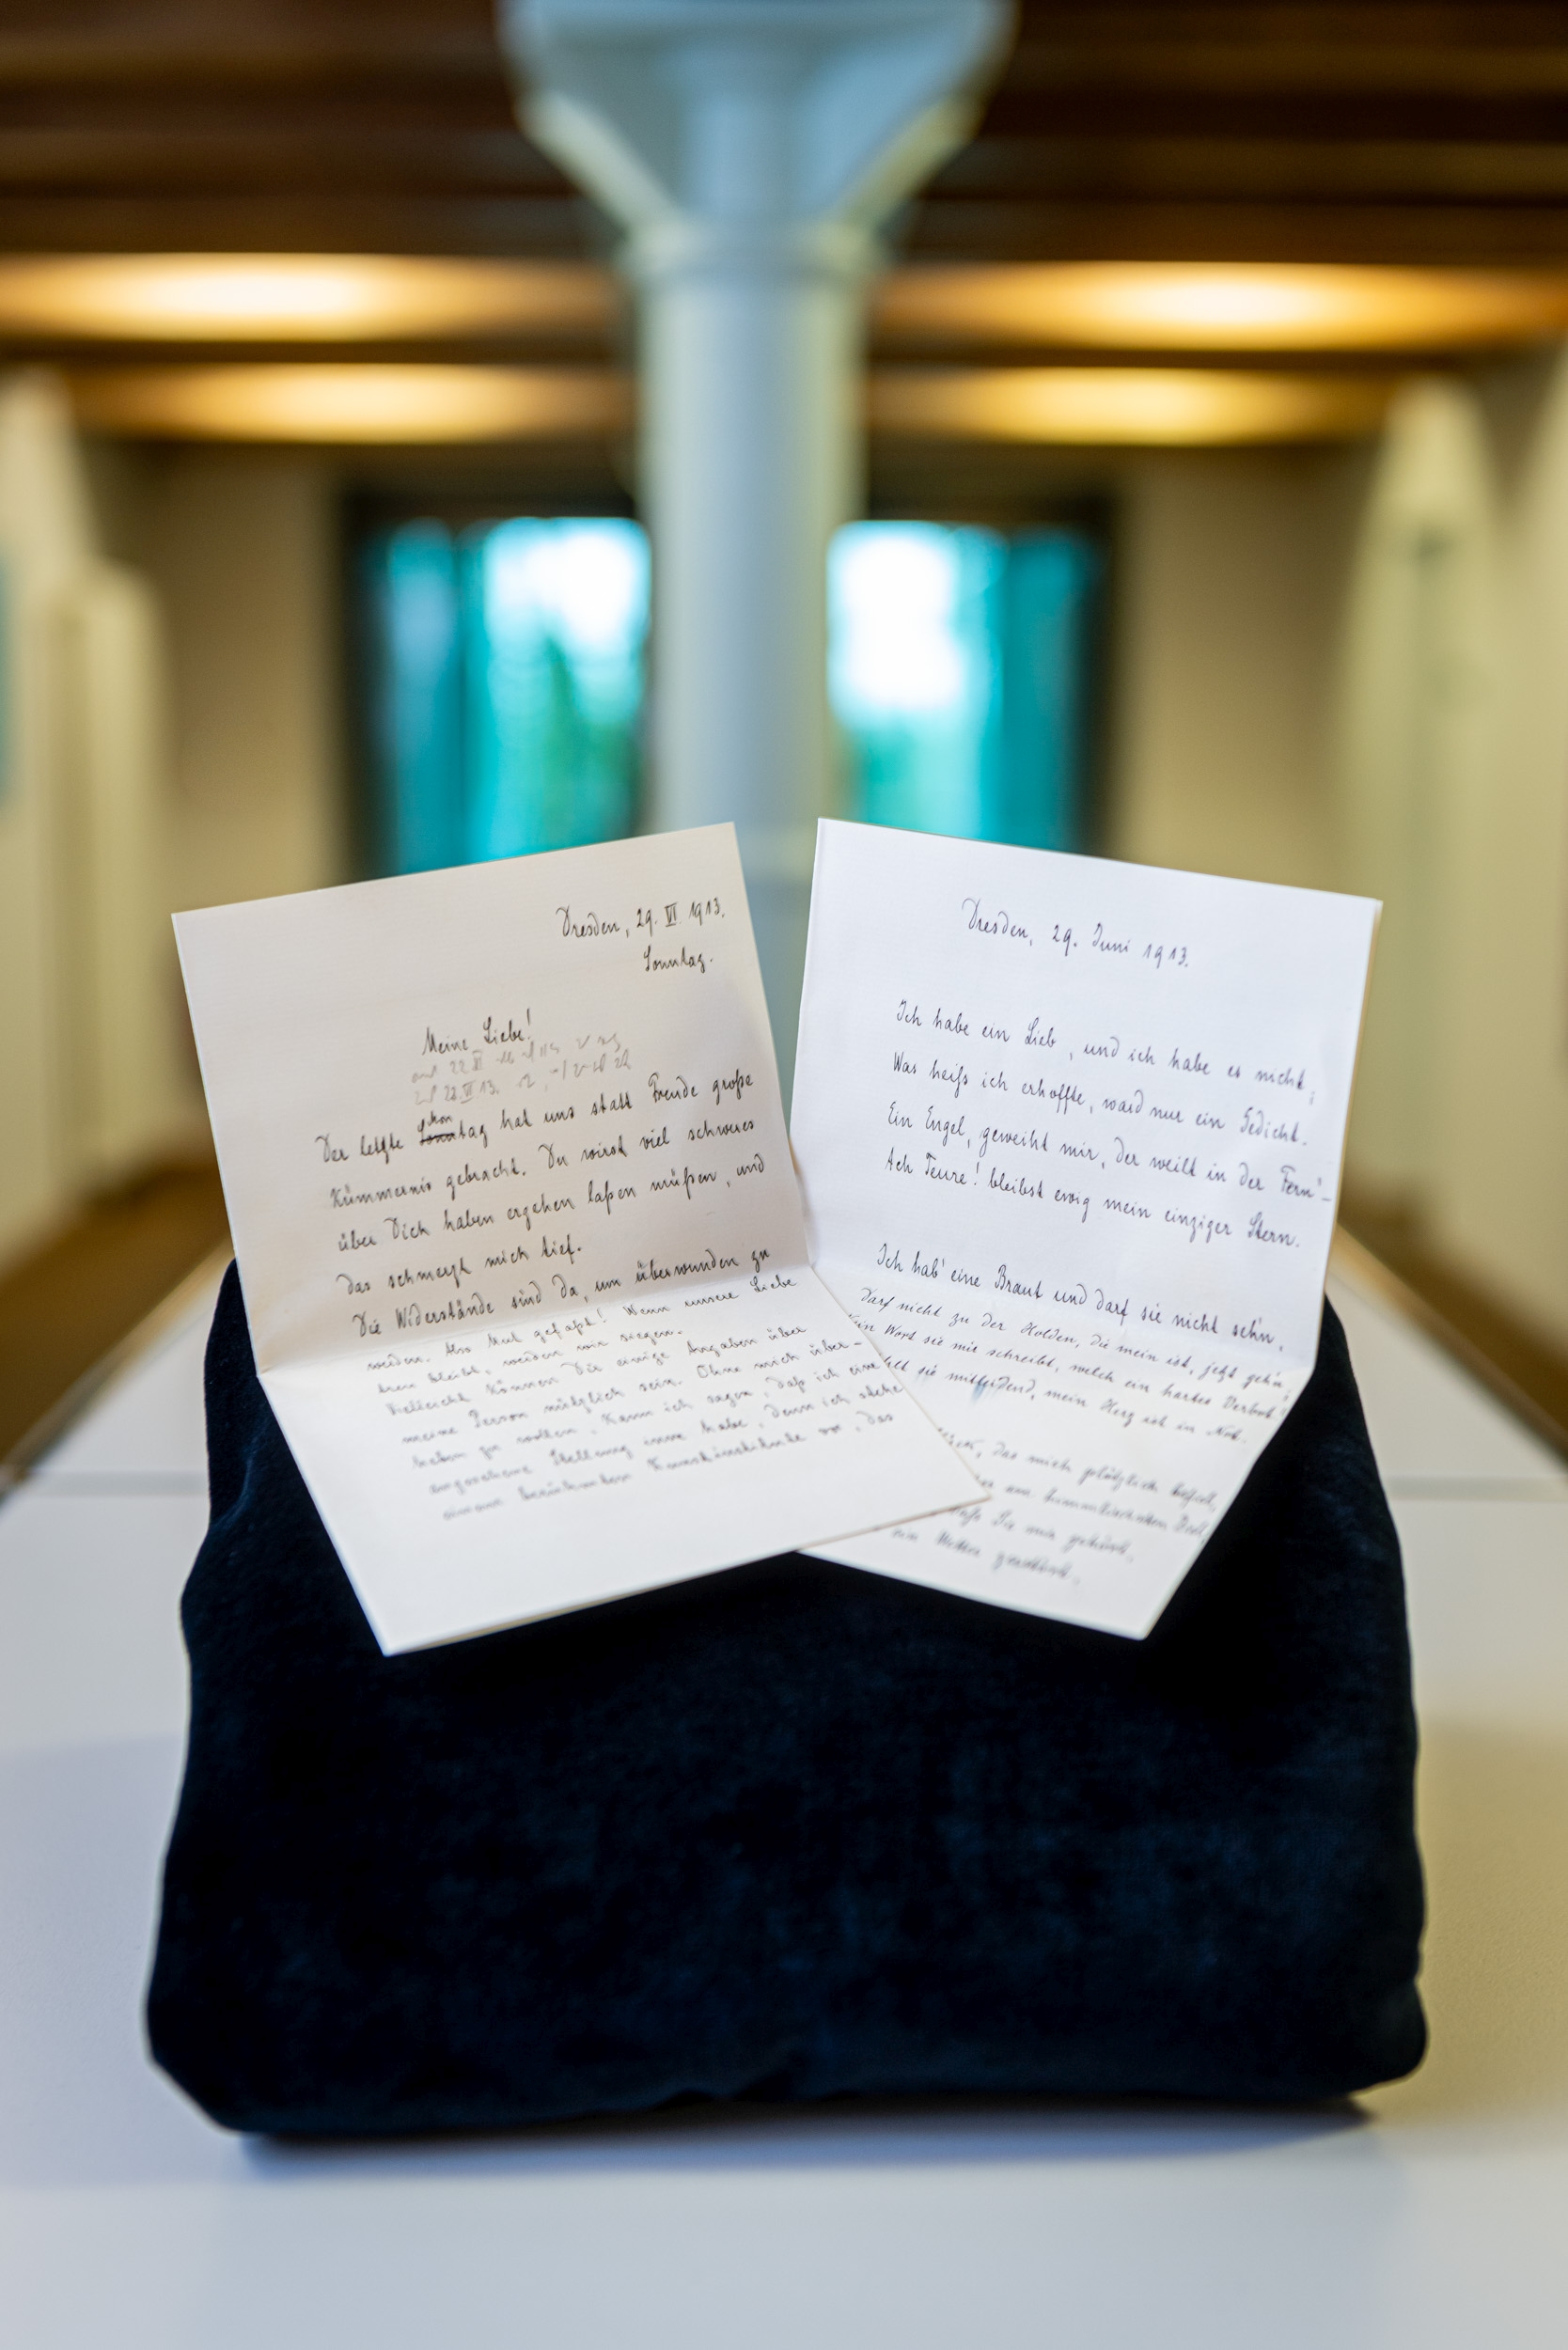 Dresden, 29. VI. 1913.
Sonntag.
Meine Liebe!
22. VI
28. VI 13.
Der letzte Sonntag hat uns statt Freude große
Kümmernis gebracht. Du wirst viel schweres
über Dich haben ergehen laßen müßen, und
das schmerzt mich tief.
Die Widerstände sind da, um überwunden zu
werden. Also Mut gefaßt! Wenn unsere Liebe
treu bleibt, werden wir siegen.
Vielleicht können Dir einige Angaben über
meine Person nützlich sein. Ohne mich über-
heben zu wollen, kann ich sagen, daß ich eine
angesehene Stellung inne habe, denn ich stehe
einem berühmten Kunstinstitute vor, das
Dresden, 29. Juni 1913.
Ich habe ein Lieb, und ich habe es nicht,
Was heiß ich erhoffte, ward nur ein Gedicht.
Ein Engel, geweiht mir, der weilt in der Fern'–
Ach Teure! bleibst ewig mein einziger Stern.
Ich hab' eine Braut und darf sie nicht sehn,
Darf nicht zu der Holden, die mein ist, jetzt gehn,
Kein Wort sie mir schreibt, welch ein hartes Verbot!
sie mitleidend, mein Herz ist in Not.
das mich plötzlich befiel,
am
Sie mir gehört,
ein Wetter zerstört.